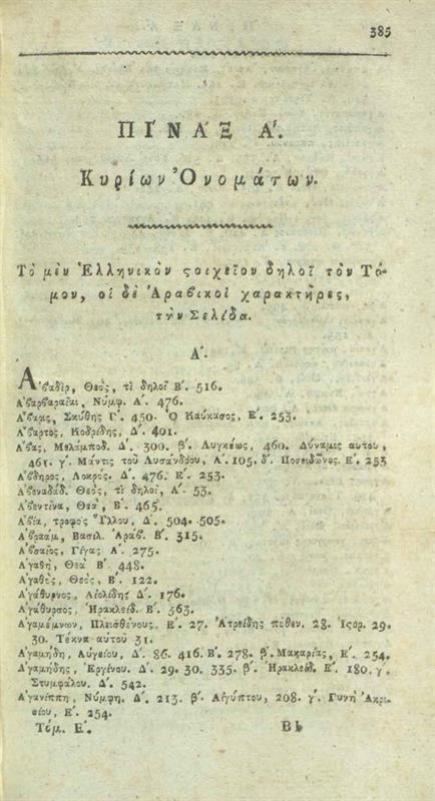 385
ΠΙΝΑΞ Α΄.
Κυρίων Ὀνομάτων.
Τὸ μὲν Ἑλληνικὸν ϛοιχεῖον δηλοῖ τὸν Τό-
μον, οἱ δὲ Ἀραβικοὶ χαρακτῆρες,
τὴν Σελίδα.
Α΄.
Ἀβαδὶρ, Θεὸς, τὶ δηλοῖ Β΄. 516.
Ἀβαρβαραῖαι, Νύμφ. Α΄. 476.
Ἄβαρις, Σκύθης Γ΄. 450. Ὁ Καύκασος, Ε΄. 253.
Ἄβαρτος, Κοδρίδης, Δ΄. 401.
Ἄβας, Μελάμποδ. Δ΄. 300. β΄. Λυγκέως, 460. Δύναμις αυτου,
461. γ΄. Μάντις τοῦ Λυσάνδρου, Α΄. 105. δ΄. Ποσειδῶνος. Ε΄. 253
Ἄβδηρος, Λοκρὸς. Δ΄. 476. Ε΄. 253.
Ἀβεναδὰδ. Θεὸς, τὶ δηλοῖ, Α΄. 53.
Ἀβεντίνα, Θεὰ, Β΄. 465.
Ἀβία, τροφὸς Ὕλλου, Δ΄. 504. 505.
Ἀβραάμ, Βασιλ. Ἀραβ. Β΄. 315.
Ἀβσαῖος, Γίγας Α΄. 275.
Ἀγαθὴ, Θεὰ Β΄. 448.
Ἀγαθὸς, Θεὸς, Β΄. 122.
Ἀγάθυρνος, Αἰολίδης Δ΄. 176.
Ἀγάθυρσος, Ἡρακλείδ. Β΄. 563.
Ἀγαμέμνων, Πλεισθένους. Ε΄. 27. Ἀτρείδης πόθεν. 28. Ἱϛορ. 29.
30. Τέκνα αυτοῦ 31.
Ἀγαμήδη, Αὐγείου, Δ΄. 86. 416. Β΄. 278. β΄. Μακαρίας, Ε΄. 254.
Ἀγαμήδης, Ἐργένου. Δ΄. 29. 30. 335. β΄. Ἡρακλείδ. Ε΄. 180. γ΄.
Στυμφάλου. Δ΄. 542.
Ἀγανίππη, Νύμφη. Δ΄. 213. β΄. Αἰγύπτου, 208. γ΄. Γυνὴ Ἀκρι-
σίου, Ε΄. 254.
Τόμ. Ε΄. Βb